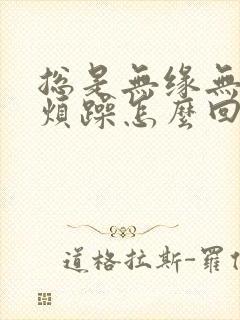 總是無缘無
煩躁怎麼回
道格拉斯-羅